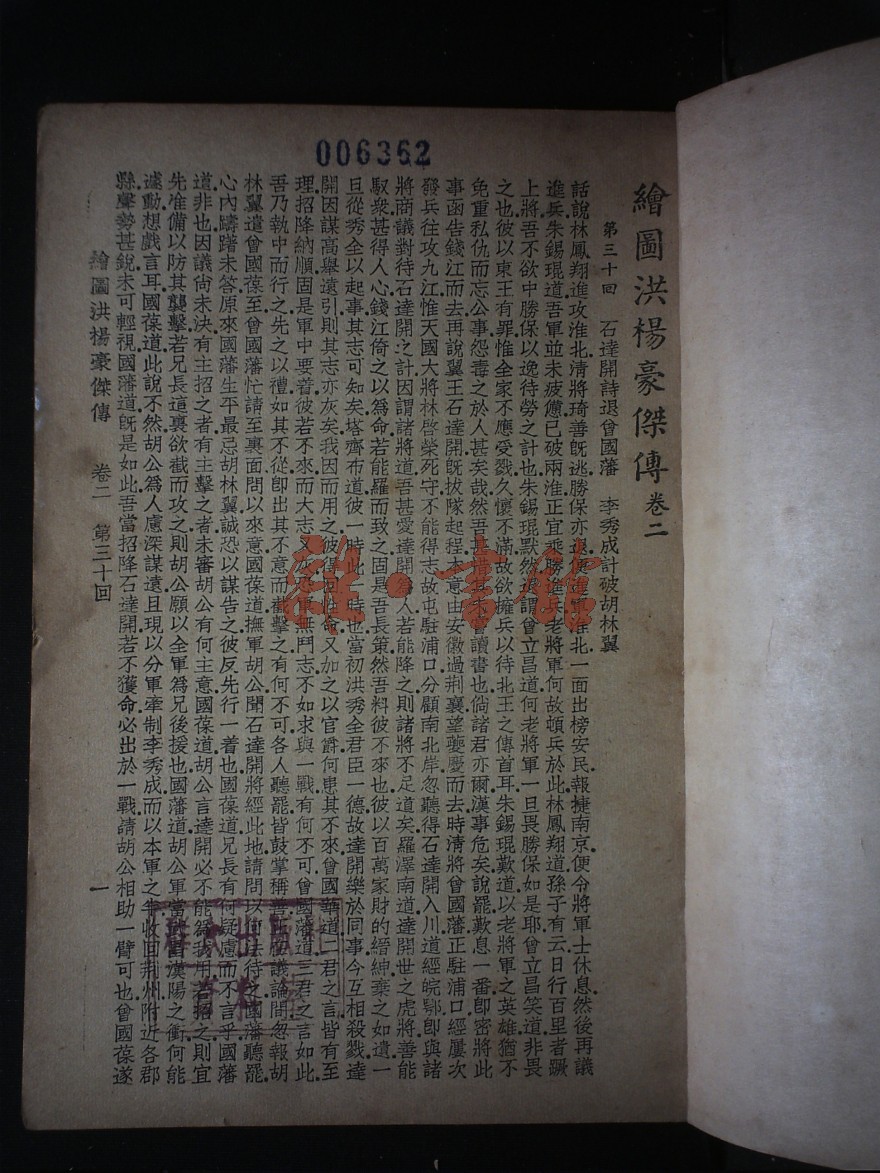 006362
繪圖洪楊豪傑傳卷二
第三十回 石達開詩退曾國藩 李秀成計破胡林翼
話說林鳳翔進攻淮北清將琦善旣逃勝保亦退遂進軍淮北一面出榜安民報捷南京便令將軍士休息然後再議
進兵朱錫琨道吾軍並未疲憊已破兩淮正宜乘勝進兵老將軍何故頓兵於此林鳳翔道孫子有云日行百里者蹶
上將吾不欲中勝保以逸待勞之計也朱錫琨默然後謂曾立昌道何老將軍一旦畏勝保如是耶曾立昌笑道非畏
之也彼以東王有罪惟全家不應受戮久懷不滿故欲擁兵以待北王之傳首耳朱錫琨歎道以老將軍之英雄猶不
免重私仇而忘公事怨毒之於人甚矣哉然吾甚惜其未曾讀書也倘諸君亦爾漢事危矣說罷歎息一番卽密將此
事函告錢江而去再說翼王石達開旣拔隊起程本意由安徽過荆襄望夔慶而去時淸將曾國藩正駐浦口經屢次
發兵往攻九江惟天國大將林啓榮死守不能得志故屯駐浦口分顧南北岸忽聽得石達開入川道經皖鄂卽與諸
將商議對待石達開之計因謂諸將道吾甚愛達開爲人若能降之則諸將不足道矣羅澤南道達開世之虎將善能
馭衆甚得人心錢江倚之以爲命若能羅而致之固是吾長策然吾料彼不來也彼以百萬家財的縉紳棄之如遺一
旦從秀全以起事其志可知矣塔齊布道彼一時此一時也當初洪秀全君臣一德故達開樂於同事今互相殺戮達
開因謀高舉遠引則其志亦灰矣我因而用之彼得回性命又加之以官爵何患其不來曾國華道二君之言皆有至
理招降納順固是軍中要着彼若不來而大志又灰必軍無鬥志不如求與一戰有何不可曾國藩道三君之言如此
吾乃執中而行之先之以禮如其不從卽出其不意而截擊之有何不可各人聽罷皆鼓掌稱善正議論間忽報胡
林翼遣曾國葆至曾國藩忙請至裏面問以來意國葆道撫軍胡公聞石達開將經此地請問以何法待之國藩聽罷
心內躊躇未答原來國藩生平最忌胡林翼誠恐以謀告之彼反先行一着也國葆道兄長有何疑慮而不言乎國藩
道非也因議尙未決有主招之者有主擊之者未審胡公有何主意國葆道胡公言達開必不能爲我用若招之則宜
先准備以防其襲擊若兄長這裏欲截而攻之則胡公願以全軍爲兄後援也國藩道胡公軍當武昌漢陽之衝何能
遽動想戲言耳國葆道此說不然胡公爲人慮深謀遠且現以分軍牽制李秀成而以本軍之半收回荆州附近各郡
縣聲勢甚銳未可輕視國藩道旣是如此吾當招降石達開若不獲命必出於一戰請胡公相助一臂可也曾國葆遂
繪圖洪楊豪傑傳 卷二 第三十回 一